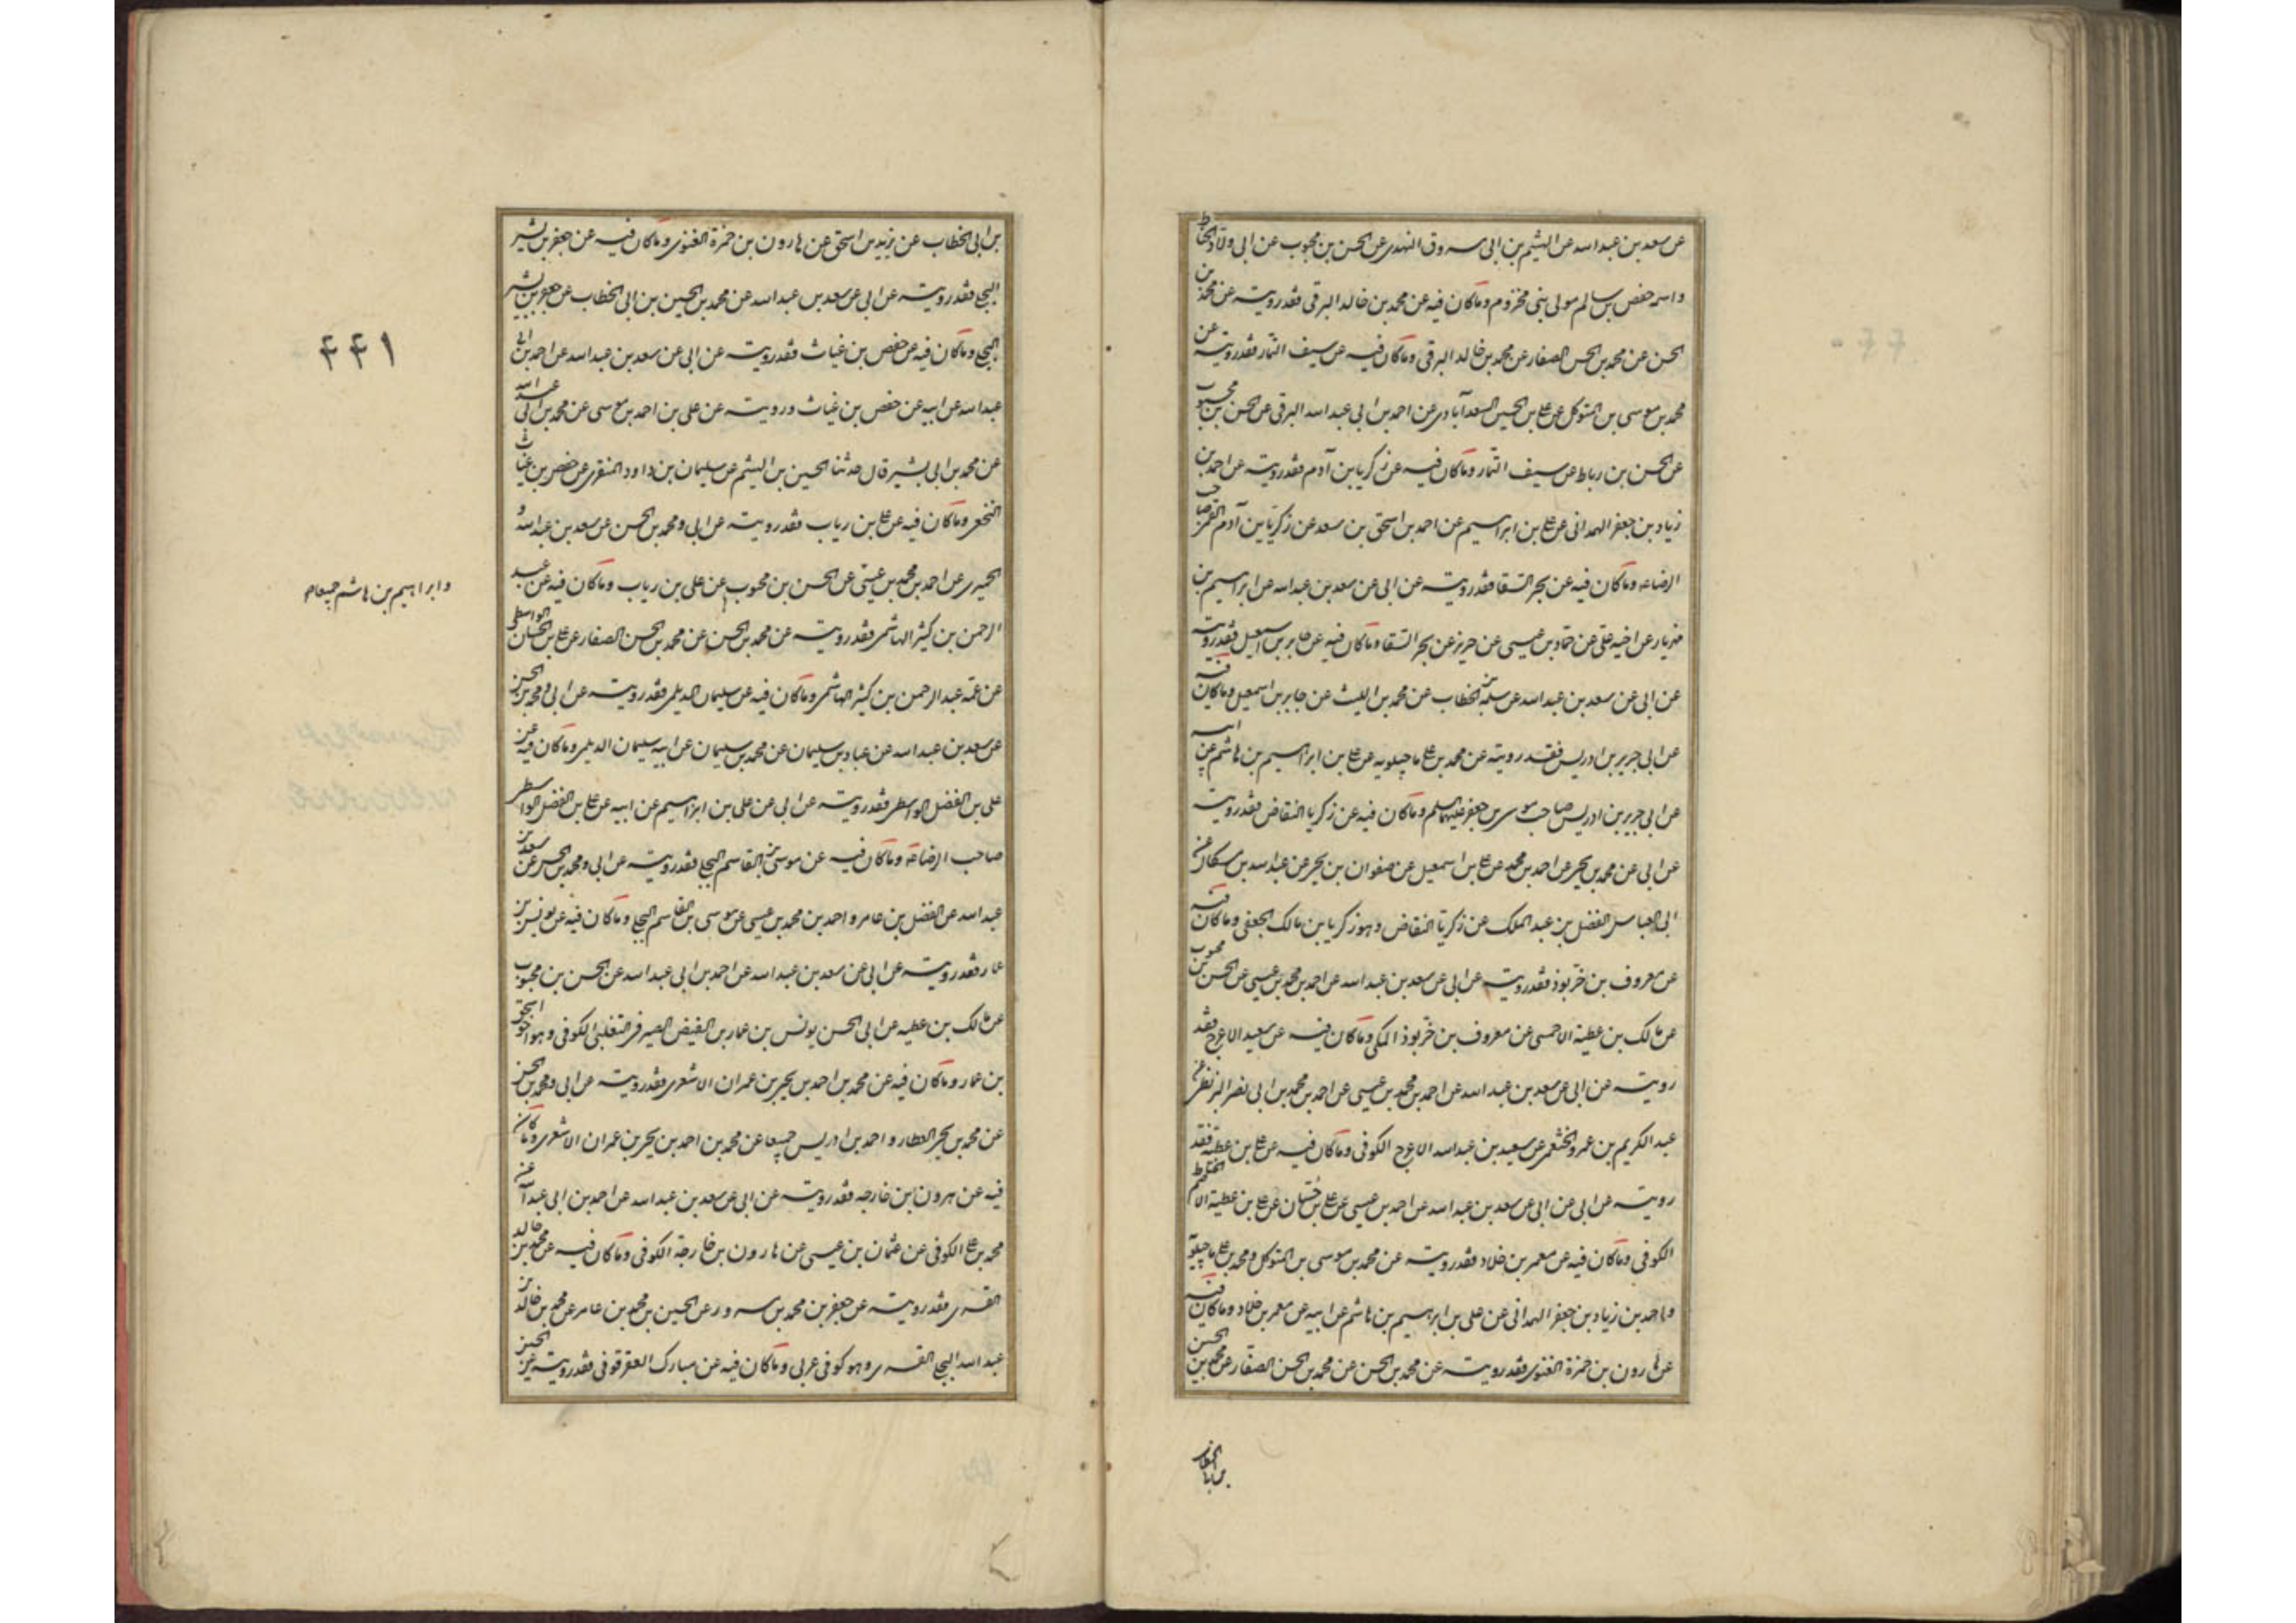 عن سعد بن عبد الله عن الهيثم بن ابي مسروق النهدى عن الحسن بن محبوب عن ابي ولاد الحناط
واسمه حفص بن سالم مولى بنى مخزوم وما كان فيه عن محمد بن خالد البرقى فقد رويته عن محمد بن
الحسن عن محمد بن الحسن الصفار عن محمد بن خالد البرقى وما كان فيه عن سيف التمار فقد رويته عن
محمد بن موسى بن المتوكل عن على بن الحسين السعدآبادى عن احمد بن ابى عبد الله البرقى عن الحسن بن محبوب
عن الحسن بن رباط عن سيف التمار وما كان فيه عن زكريا بن آدم فقد رويته عن احمد بن
زياد بن جعفر الهمدانى عن على بن ابراهيم عن احمد بن اسحق بن سعد عن زكريا بن آدم القمى صاحب
الرضا عه وما كان فيه عن بحر السقا فقد رويته عن ابى عن سعد بن عبد الله عن ابراهيم بن
مهزيار عن اخيه على عن حماد بن عيسى عن حريز عن بحر السقا وما كان فيه عن جابر بن اسمعيل فقد رويته
عن ابى عن سعد بن عبد الله عن سلمة بن الخطاب عن محمد بن الليث عن جابر بن اسمعيل وما كان فيه
عن ابى جرير بن ادريس فقد رويته عن محمد بن على ماجيلويه عن على بن ابراهيم بن هاشم عن ابيه
عن ابى جرير بن ادريس صاحب موسى بن جعفر عليهما السلم وما كان فيه عن زكريا النقاض فقد رويته
عن ابى عن محمد بن يحيى عن احمد بن محمد عن على بن اسمعيل عن صفوان بن يحيى عن عبد الله بن مسكان عن
ابى العباس الفضل بن عبد الملك عن زكريا النقاض وهو زكريا بن مالك الجعفى وما كان فيه
عن معروف بن خربوذ فقد رويته عن ابى عن سعد بن عبد الله عن احمد بن محمد بن عيسى عن الحسن بن محبوب
عن مالك بن عطية الاحمسى عن معروف بن خربوذ المكى وما كان فيه عن سعيد الاعرج فقد
رويته عن ابى عن سعد بن عبد الله عن احمد بن محمد بن عيسى عن احمد بن محمد بن ابى نصر البزنطى عن
عبد الكريم بن عمرو الخثعمى عن سعيد بن عبد الله الاعرج الكوفى وما كان فيه عن على بن عطية فقد
رويته عن ابى عن ابى عن سعد بن عبد الله عن احمد بن عيسى عن على بن حسان عن على بن عطية الاصم الحناط
الكوفى وما كان فيه عن معمر بن خلاد فقد رويته عن محمد بن موسى بن المتوكل ومحمد بن على ماجيلويه
واحمد بن زياد بن جعفر الهمدانى عن على بن ابرهيم بن هاشم عن ابيه عن معمر بن خلاد وما كان فيه
عن هارون بن حمزة الغنوى فقد رويته عن محمد بن الحسن عن محمد بن الحسن الصفار عن محمد بن الحسين
بن ابى الخطاب عن يزيد بن اسحق عن هارون بن حمزة الغنوى وما كان فيه عن جعفر بن بشير
البجلى فقد رويته عن ابى عن سعد بن عبد الله عن محمد بن الحسين بن ابى الخطاب عن جعفر بن بشير
البجلى وما كان فيه عن حفص بن غياث فقد رويته عن ابى عن سعد بن عبد الله عن احمد بن ابى
۴۴۱
عبد الله عن ابيه عن حفص بن غياث ورويته عن على بن احمد بن موسى عن محمد بن ابى عبد الله
عن محمد بن ابى بشير قال حدثنا الحسين بن الهيثم عن سليمان بن داود المنقرى عن حفص بن غياث
النخعى وما كان فيه عن على بن رياب فقد رويته عن ابى ومحمد بن الحسن عن سعد بن عبد الله و
الحميرى عن احمد بن محمد بن عيسى عن الحسن بن محبوب عن على بن رياب وما كان فيه عن عبد
وابراهيم بن هاشم جميعا صح
الرحمن بن كثير الهاشمى فقد رويته عن محمد بن الحسن عن محمد بن الحسن الصفار عن على بن الحسان الواسطى
عن عمه عبد الرحمن بن كثير الهاشمى وما كان فيه عن سليمان الديلمى فقد رويته عن ابى ومحمد بن الحسن
عن سعد بن عبد الله عن عباد بن سليمان عن محمد بن سليمان عن ابيه سليمان الديلمى وما كان فيه عن
على بن الفضل الواسطى فقد رويته عن ابى عن على بن ابراهيم عن ابيه عن على بن الفضل الواسطى
صاحب الرضا عه وما كان فيه عن موسى بن القاسم البجلى فقد رويته عن ابى ومحمد بن الحسن عن سعد بن
عبد الله عن الفضل بن عامر واحمد بن محمد بن عيسى عن موسى بن القاسم البجلى وما كان فيه عن يونس بن
عمار فقد رويته عن ابى عن سعد بن عبد الله عن احمد بن ابى عبد الله عن الحسن بن محبوب
عن مالك بن عطيه عن ابى الحسن يونس بن عمار بن الفيض الصيرفى التغلبى الكوفى وهو اخو اسحق
بن عمار وما كان فيه عن محمد بن احمد بن يحيى بن عمران الاشعرى فقد رويته عن ابى ومحمد بن الحسن
عن محمد بن يحيى العطار واحمد بن ادريس جميعا عن محمد بن احمد بن يحيى بن عمران الاشعرى وما كان
فيه عن هرون بن خارجه فقد رويته عن ابى عن سعد بن عبد الله عن احمد بن ابى عبد الله عن
محمد بن على الكوفى عن عثمان بن عيسى عن هارون بن خارجة الكوفى وما كان فيه عن محمد بن خالد
القسرى فقد رويته عن جعفر بن محمد بن مسرور عن الحسين بن محمد بن عامر عن محمد بن خالد بن
عبد الله البجلى القسرى وهو كوفى عربى وما كان فيه عن مبارك العقرقوفى فقد رويته عن الحسين